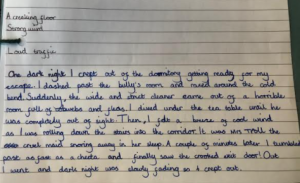 A creaking floor
Strong wind
Loud traffic
One dark night I crept out of the dormitory going ready for my
escape. I dashed past the bully's room and raced around the cold
bend. Suddenly, the wide and strict cleaner came out of a horrible
room full of cobwebs and fleas. I dived under the tea table until he
was completely out of sight. Then, I felt a breeze of cool wind
as I was rolling down the stairs into the corridor. It was Mrs Troll the
cruel maid snoring away in her sleep. A couple of minutes later I tumbled
past as fast as a cheeta and finally saw the crooked exit door! Out
I went and dark night was slowly fading as I crept out.